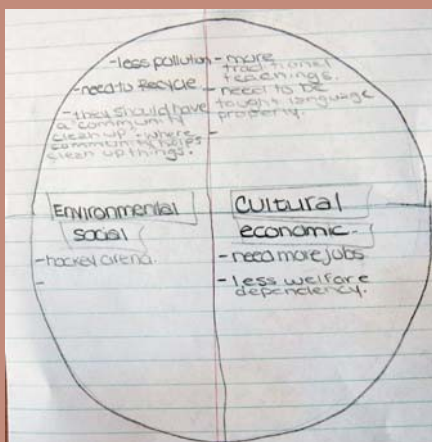 -less pollution
-need to Recycle
-they should have
a community
clean up. where
community helps
clean up things.
-more
traditional
teachings.
-need to be
taught language
properly.
-
Environmental
Cultural
social
economic.
-hockey arena.
-
-need more jobs
-less welfare
dependency.